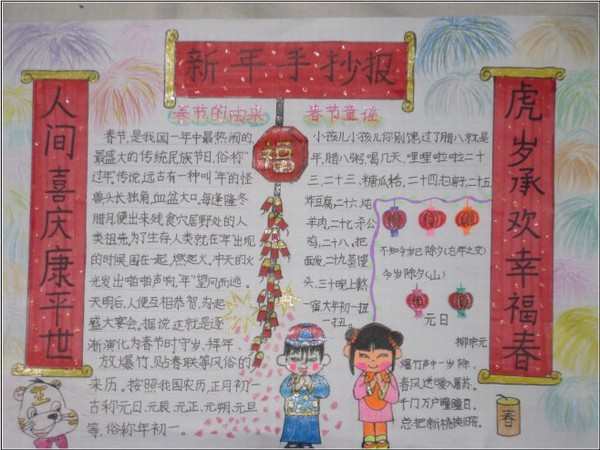 新年手抄报
人间喜庆康平世
虎岁承欢幸福春
春节的由来
春节,是我国一年中最热闹的
最盛大的传统民族节日,俗称“
过年”传说,远古有一种叫“年”的怪
兽头长独角,血盆大口,每逢隆冬
腊月,便出来残食穴居野处的人
类祖先,为了生存人类就在“年”出现
的时候,围在一起,燃起火,冲天的火
光发出啪啪声响,“年”望风而逃。
天明后,人便互相恭贺,为起
盛大宴会,据说,这就是逐
渐演化为春节时守岁、拜年、
放爆竹、贴春联等风俗的
来历。按照我国农历,正月初一
古称元日、元辰、元正、元朔、元旦
等,俗称年初一。
福
春节童谣
小孩儿小孩儿你别馋过了腊八就是
年,腊八粥,喝几天,哩哩啦啦二十
三,二十三,糖瓜粘。二十四扫房子,二十五
炸豆腐,二十六,炖
羊肉,二十七,杀公
鸡,二十八,把
面发,二十九蒸馒
头,三十晚上熬
一宿大年初一扭
一扭。
不知今岁己除夕(忘年之交)
今岁除夕(山)
元日
柳宗元
爆竹声中一岁除,
春风送暖入屠苏,
千门万户瞳瞳日,
总把新桃换旧符。
王
春